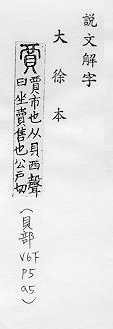 說文解字
大徐本
賈
賈市也从貝襾聲一
曰坐賣售也公戶切
(貝部
V6下
P5
a5)